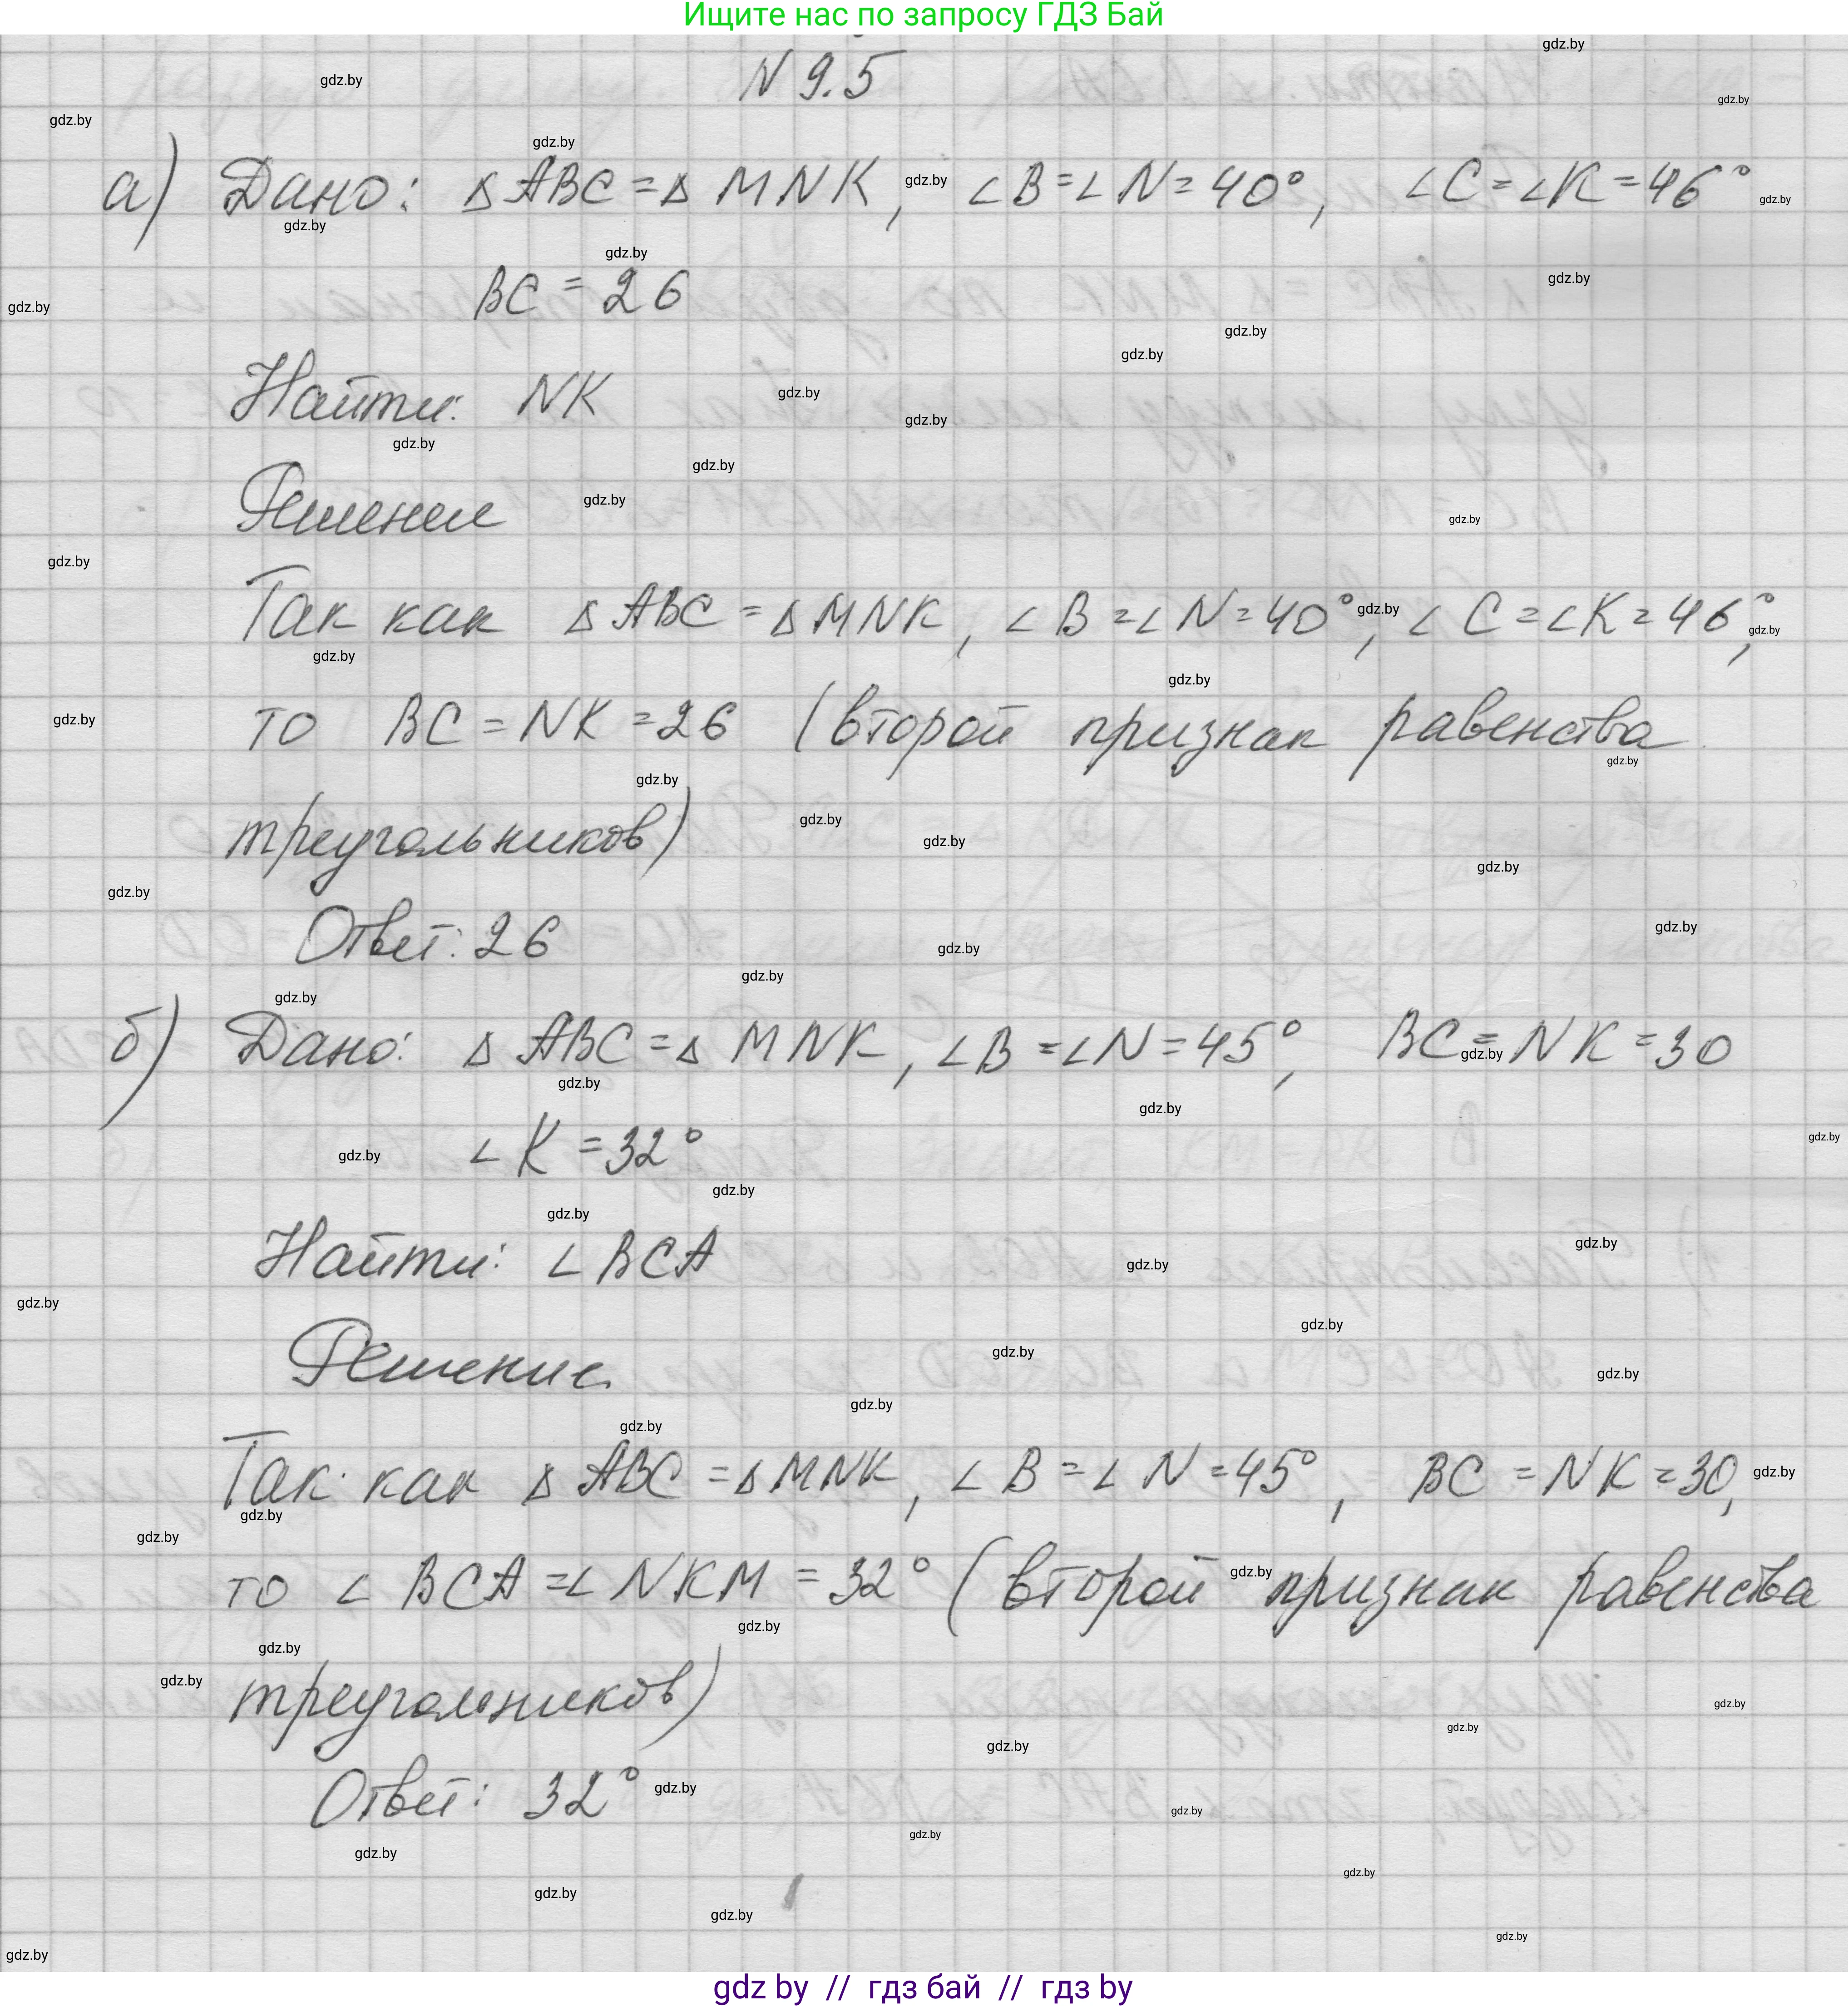 Ищите нас по запросу ГДЗ Бай
N 9.5
а) Дано: ΔABC = Δ MNK, ∠B = ∠N = 40°, ∠C = ∠K = 46°
BC = 26
Найти: NK
Решение
Так как ΔABC = ΔMNK, ∠B = ∠N = 40°, ∠C = ∠K = 46°,
то BC = NK = 26 (второй признак равенства
треугольников)
Ответ: 26
б) Дано: Δ ABC = Δ MNK, ∠B = ∠N = 45°, BC = NK = 30
∠K = 32°
Найти: ∠BCA
Решение
Так как ΔABC = ΔMNK, ∠B = ∠N = 45°, BC = NK = 30,
то ∠BCA = ∠NKM = 32° (второй признак равенства
треугольников)
Ответ: 32°
gdz by // гдз бай // гдз by